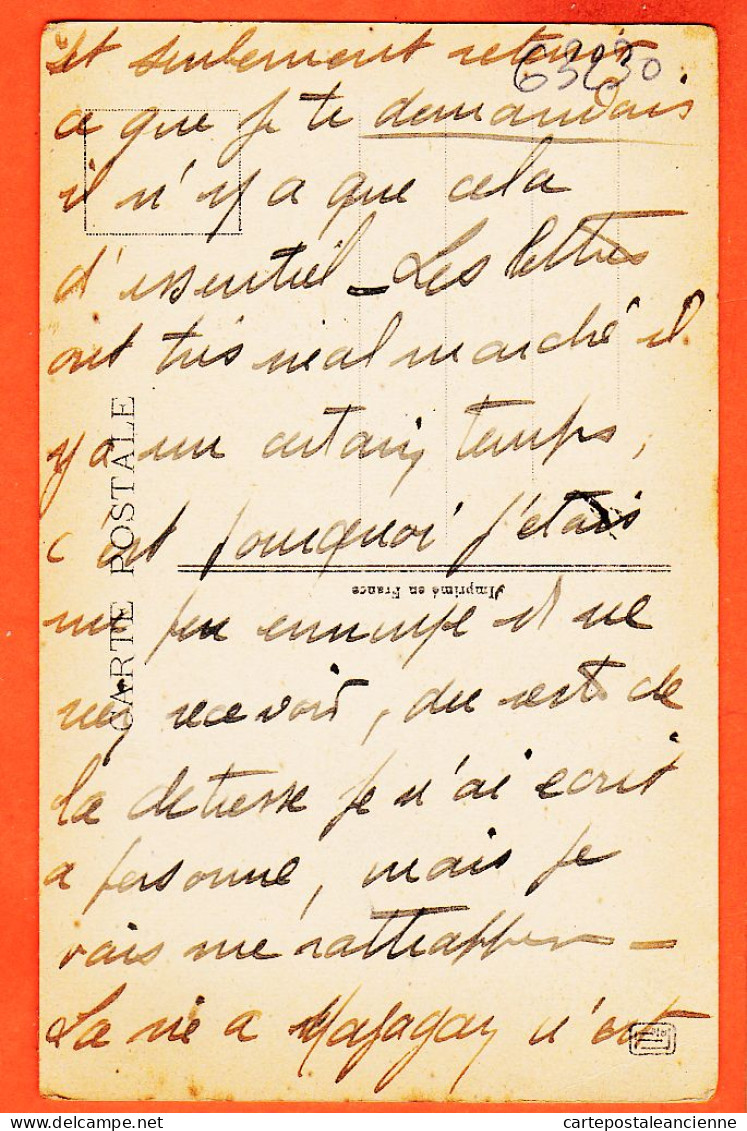 et seulement retenir
63230
ce que je te demandais
il n'y a que cela
d'essentiel - Les lettres
ont très mal marché il
y a un certain temps,
c'est pourquoi j'étais
un peu ennuyé d ne
rien recevoir, du reste de
la détresse je n'ai écrit
a personne, mais je
vais me rattrapper -
La vie a Mazagan n'est
CARTE POSTALE
Imprimé en France
cartepostaleancienne